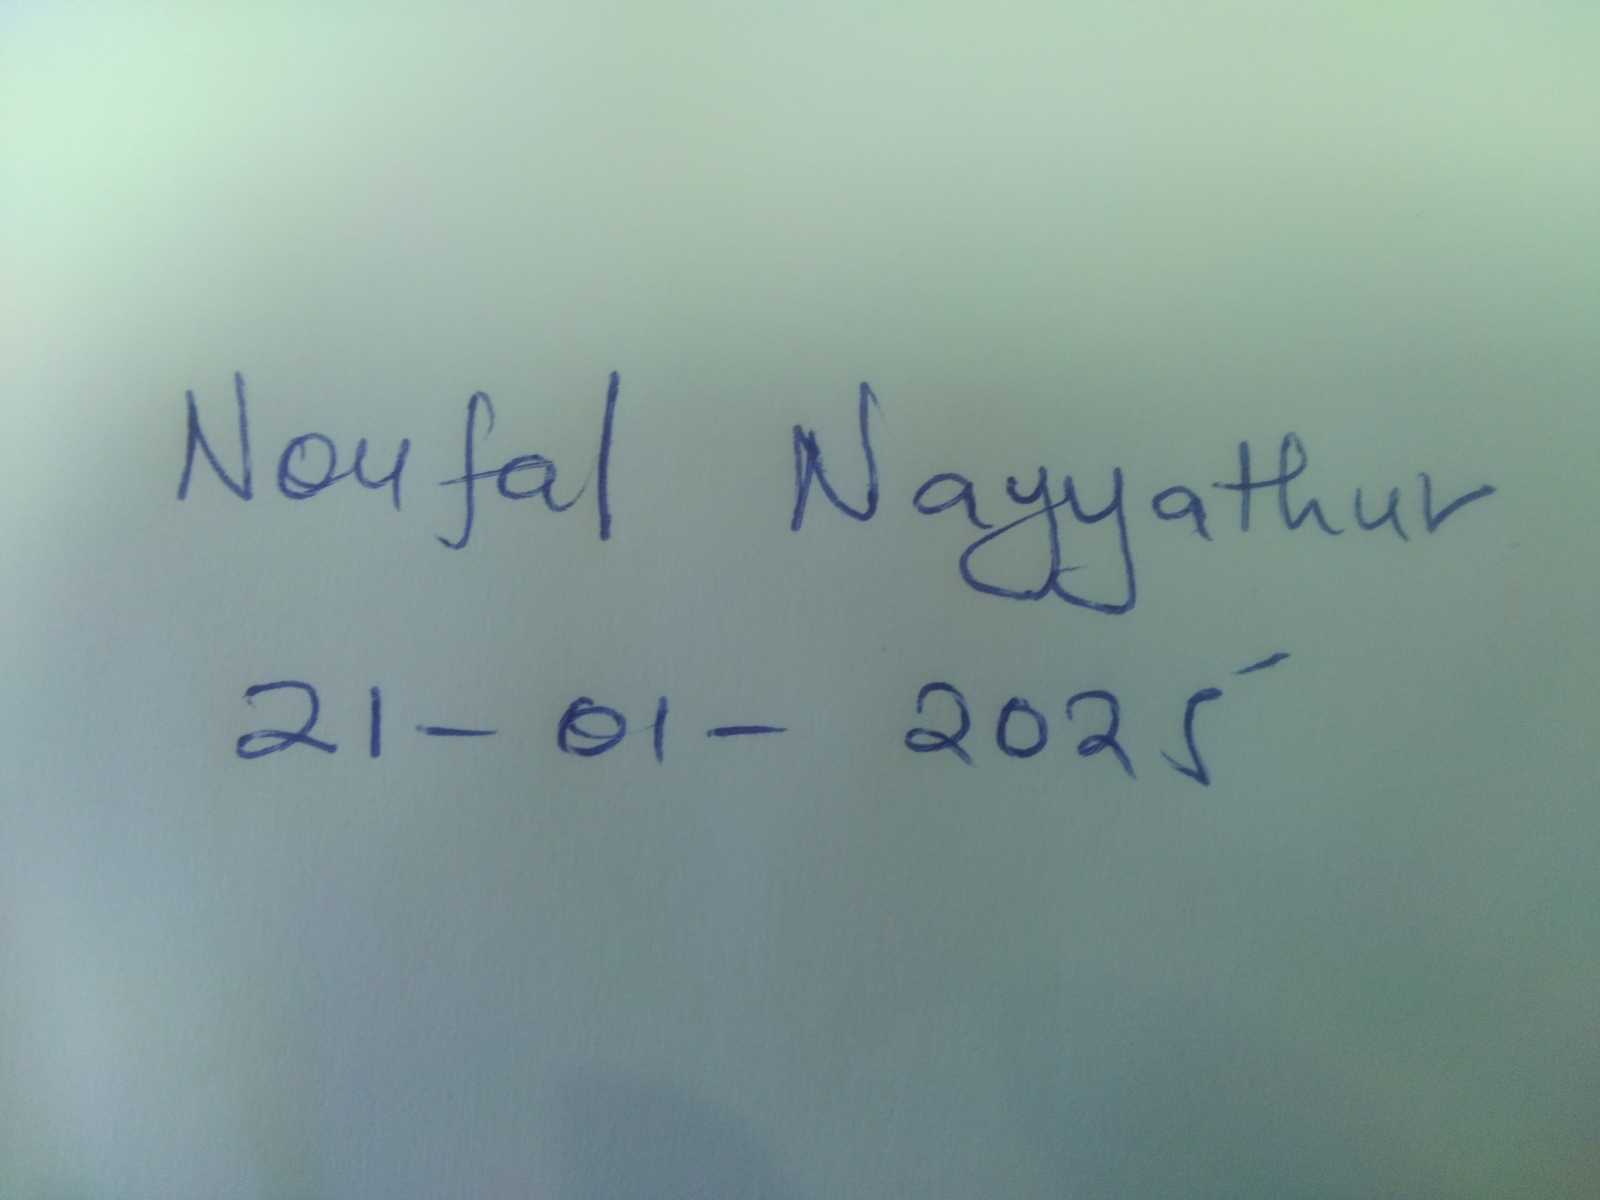 Noufal Nayyathur
21-01-2025